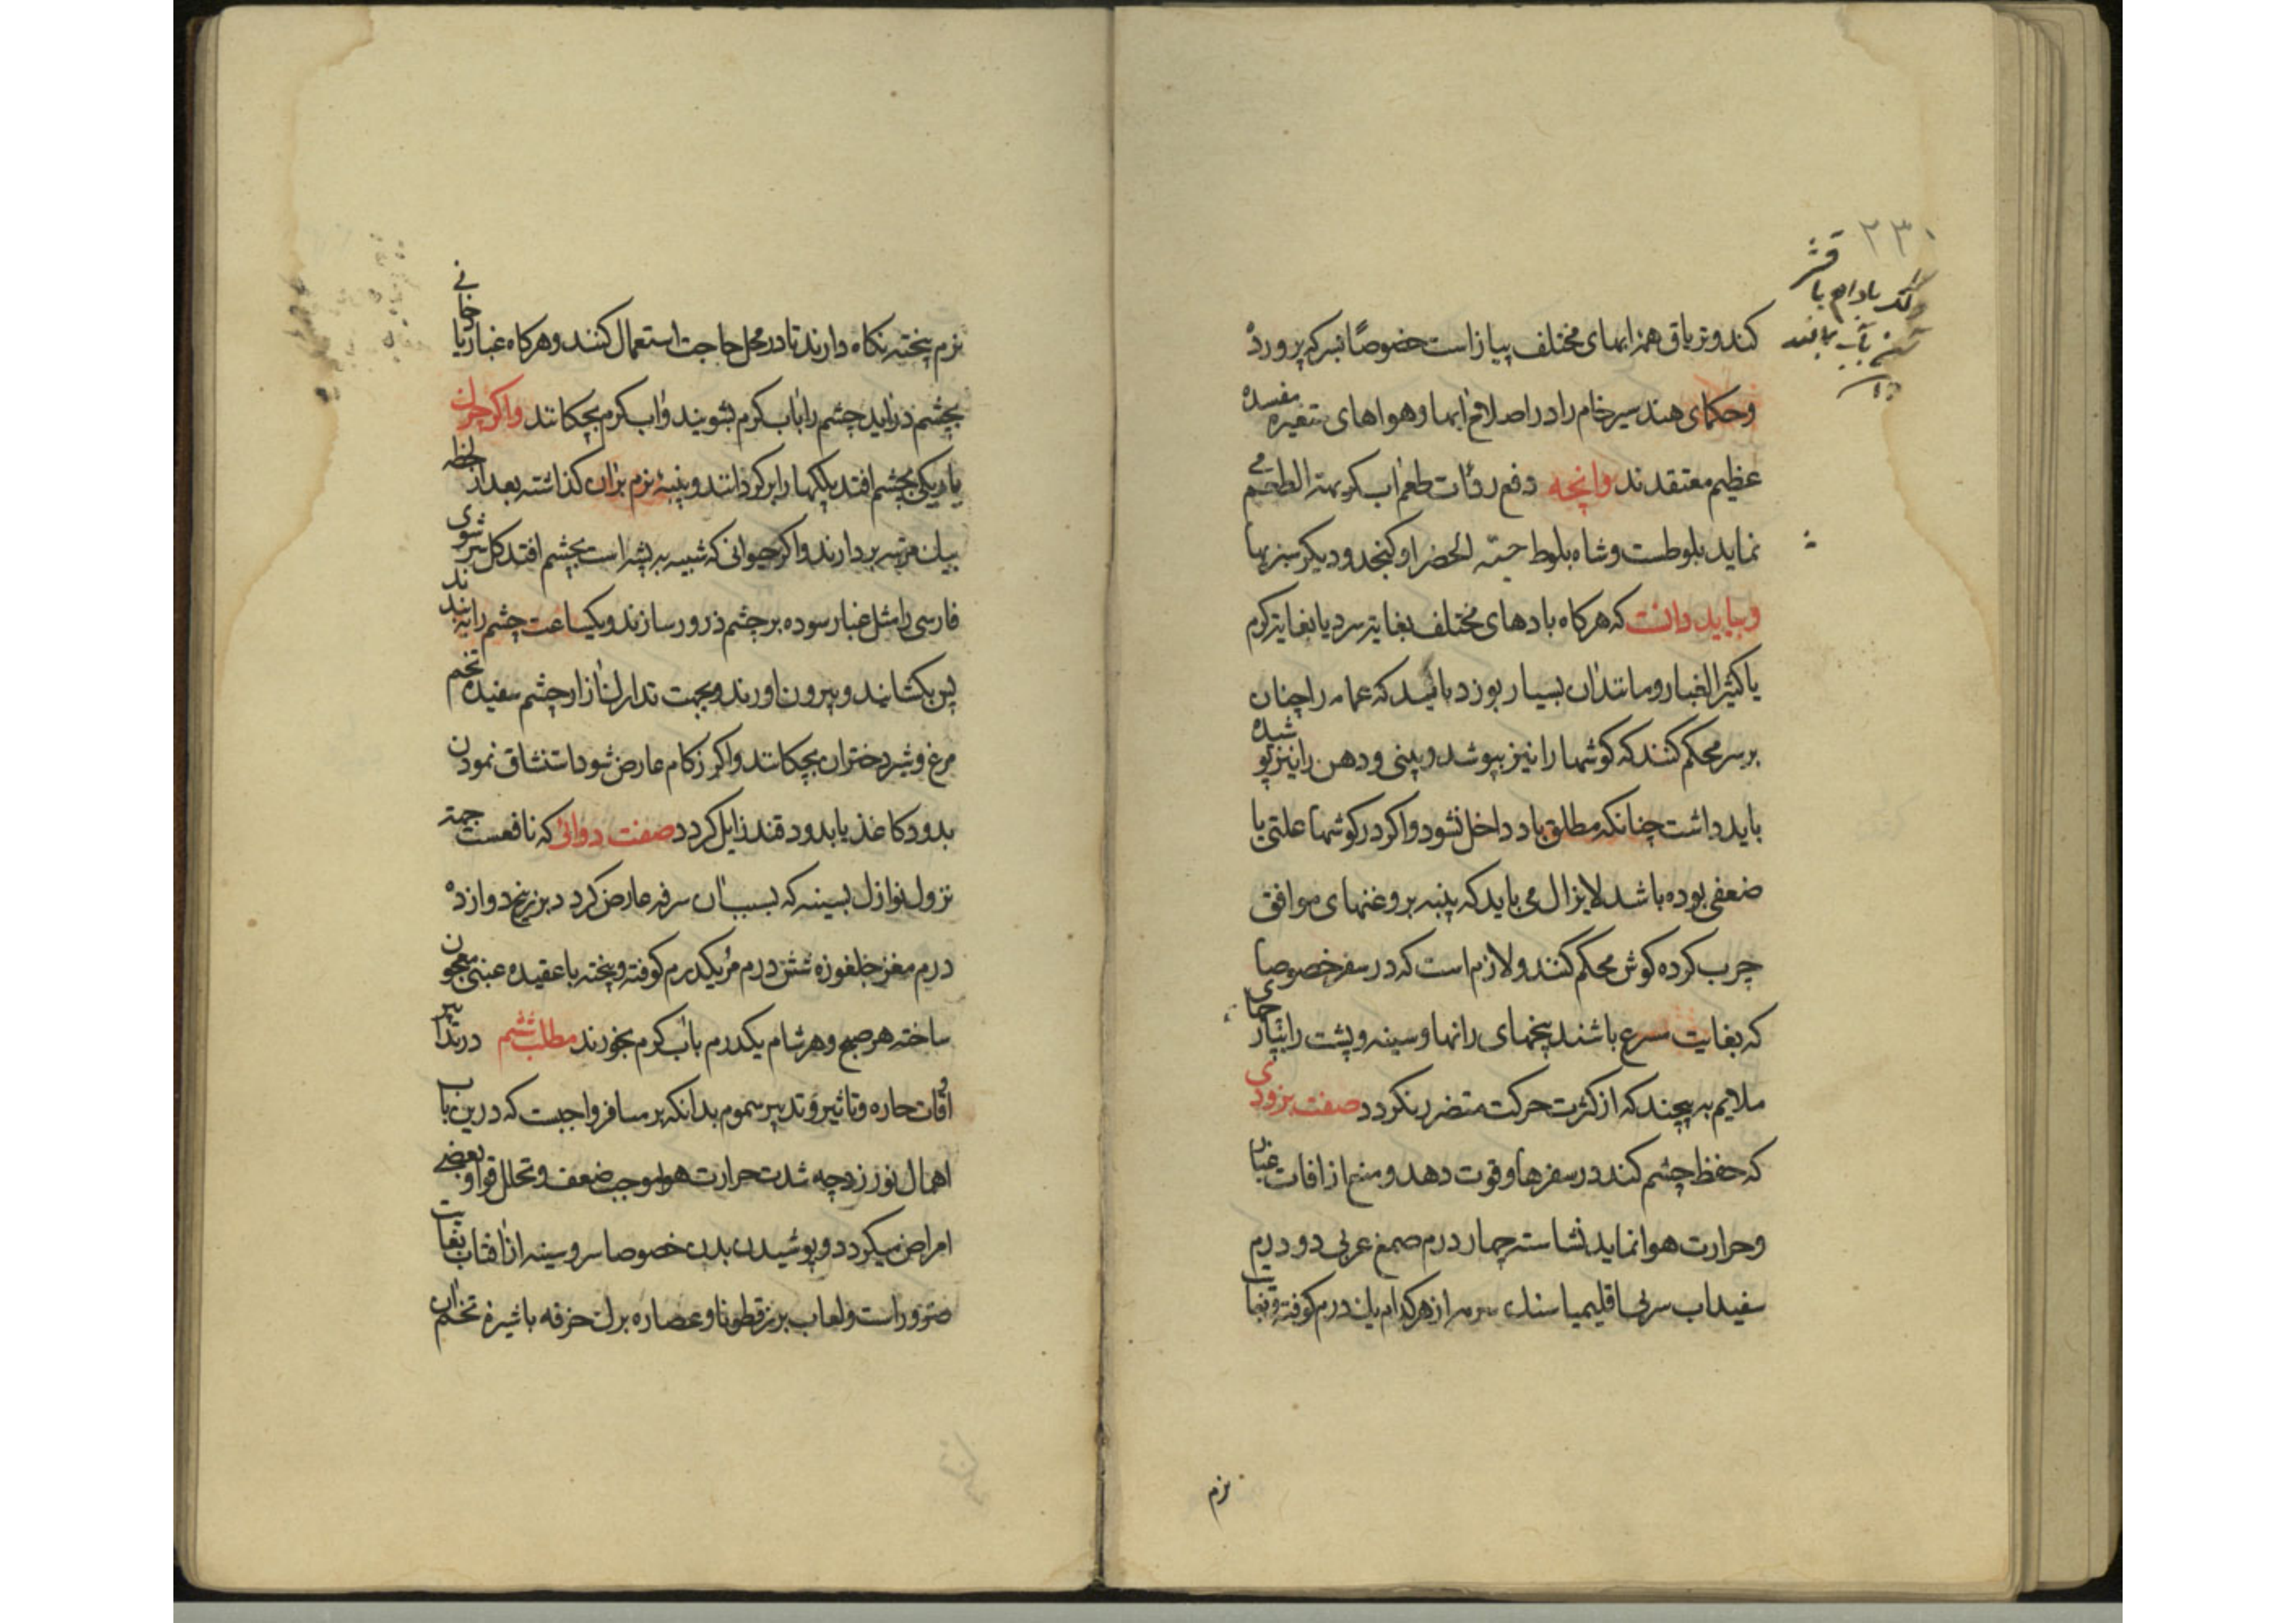 ۲۳۱
قشر
بادام با
کند و تریاق همه ابهای مختلف پیاز است خصوصًا بسرکه پرورده
و حکمای هند سیر خام را در اصلاح ابها و هواهای متغیره مفسده
عظیم معتقدند وانچه دفع رداءت طعم آب کریهة الطعم می
نماید بلوطست و شاه بلوط حبّة الخضرا و کنجد و دیکر سبزیها
و بباید دانست که هرکاه بادهای مختلف بغایة سرد یا بغایة کرم
یا کثیر الغبار و مانند آن بسیار بوزد باید که عمامه را چنان
بر سر محکم کنند که کوشها را نیز بپوشد و بینی و دهن را نیز پوشیده
باید داشت چنانکه مطلق باد داخل نشود و اکر در کوشها علتی یا
ضعفی بوده باشد لایزال می باید که پنبه بروغنهای موافق
چرب کرده کوش محکم کنند و لازم است که در سفر خصوصا
که بغایت سرع باشند پیچهای رانها و سینه و پشت را بپارچهای
ملایم به پیچند که از کثرت حرکت متضرر نکردد صفت برودی
که حفظ چشم کند در سفرها و قوت دهد و منع از افات غبار
و حرارت هوا نماید نشاسته چهار درم صمغ عربی دو درم
سفیداب سربی اقلیمیا سنك سرمه از هرکدام یك درم کوفته و بغایت
نرم
نرم پیخته نکاه دارند تا در محل حاجت استعمال کنند و هرکاه غبار یا خانی
بچشم دراید چشم را باب کرم بشویند و اب کرم بچکانند و اکر چرك
یا ریکی بچشم افتد پلکها را برکردانند و پنبهٔ نرم بران کذاشته بعد از لحظه
بیك مرتبه بردارند و اکر حیوانی که شبیه به پشه است بچشم افتد کل سرشوی
فارسی را مثل غبار سوده بر چشم ذرور سازند و یکساعت چشم را به بندند
پس بکشایند و بیرون اورند و بجهت تدارك ازار چشم سفیده تخم
مرغ و شیر دختران بچکانند و اکر زکام عارض شود استنشاق نمودن
بدود کاغذ یا بدود قند زایل کردد صفت دوائی که نافعست جهة
نزول نوازل بسینه که بسبب آن سرفه عارض کردد بزرنیخ دوازده
درم مغز جلغوزه شش درم مُر یکدرم کوفته و پخته با عقیده عنبی معجون
ساخته هر صبح و هر شام یکدرم باب کرم بخورند مطلب ششم در تدابیر
اوقات حاره و تاثیر و تدبیر سموم بدانکه بر مسافر واجبست که درین باب
اهمال نورزد چه شدت حرارت هوا موجب ضعف و تحلل قوا و بعضی
امراض میکردد و پوشیدن بدن خصوصا سر و سینه از افتاب بغایت
ضرور است و لعاب بزرقطونا و عصاره برك خرفه با شیرهٔ تخم آن